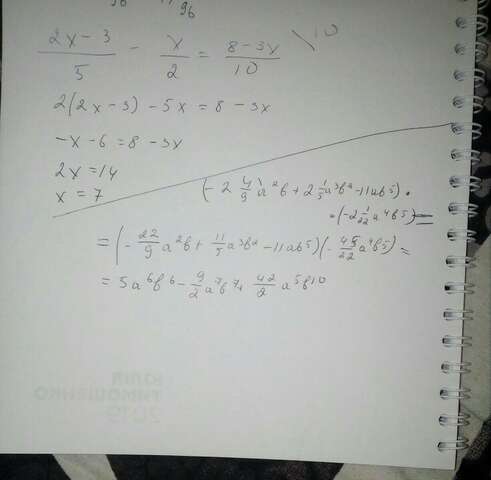 96 96
(2x - 3)/5 - x/2 = (8 - 3x)/10 \10
2(2x - 3) - 5x = 8 - 3x
-x - 6 = 8 - 3x
2x = 14
x = 7
(-2 4/9 a²b + 2 1/5 a³b² - 11ab⁵) ·
· (-2 1/22 a⁴b⁵) =
= (-22/9 a²b + 11/5 a³b² - 11ab⁵)(-45/22 a⁴b⁵) =
= 5a⁶b⁶ - 9/2 a⁷b⁷ + 42/2 a⁵b¹⁰
ЮЛІЯ
ТИМОШЕНКО
2019